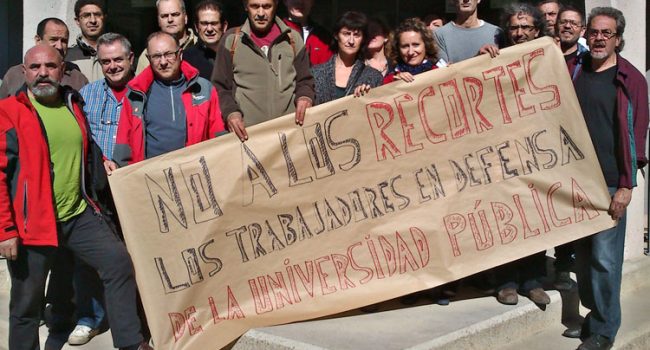 NO A LOS RECORTES
LOS TRABAJADORES EN DEFENSA
DE LA UNIVERSIDAD PÚBLICA